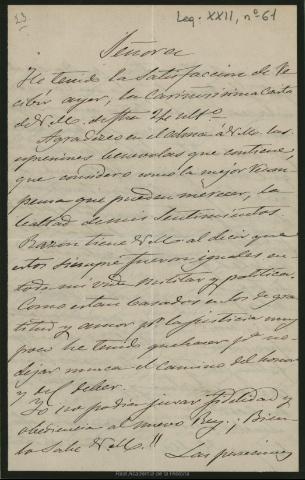 23
Leg. XXII, nº 61
Señora
He tenido la satisfaccion de re
cibir ayer, la cariñosisima carta
de V.M. de ulto
Agradezco en el alma á V.M. las
espresiones benevolas que contiene,
que considero como la mejor recom
pensa que pueden merecer, la
lealtad de mis sentimientos.
Razon tiene V.M. al decir que
estos siempre fueron iguales en
toda mi vida militar y politica.
Como estan basados en los de gra
titud y amor pr la justicia muy
poco he tenido que hacer pa no
dejar nunca el camino del honor
y del deber.
Yo no podia jurar fidelidad y
obediencia al nuevo Rey. ¡Bien
lo sabe V.M.!!
Las
Real Academia de la Historia